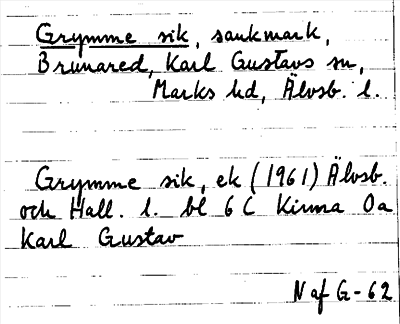 Grymme sik, sankmark,
Brunared, Karl Gustavs sn,
Marks hd, Älvsb. l.
Grymme sik, ek (1961) Älvsb.
och Hall. l. bl 6 C Kinna 0a
Karl Gustav
N af G-62